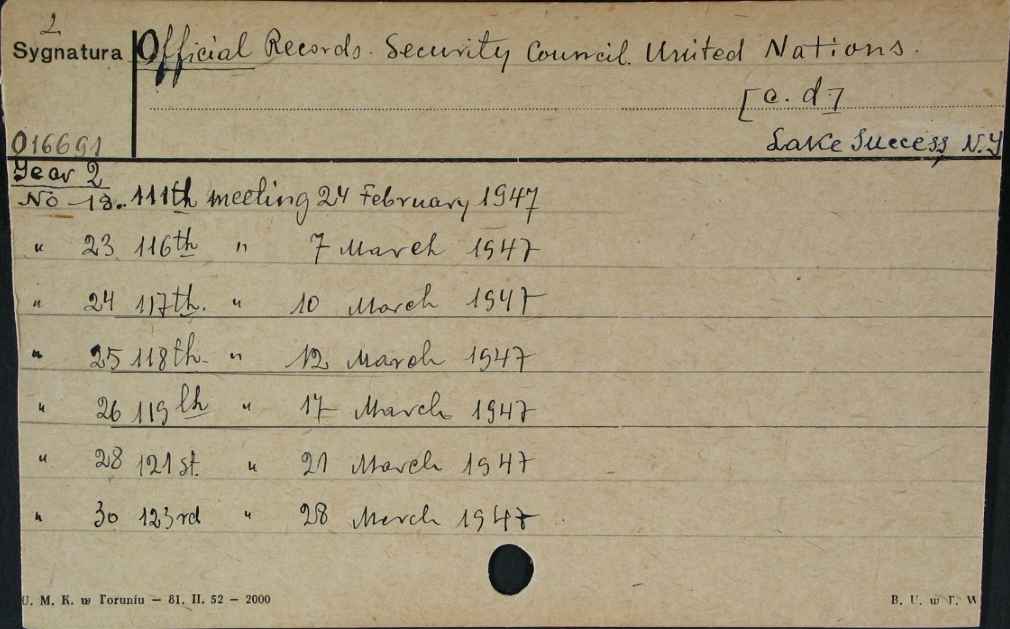 2
Sygnatura Official Records. Security Council. United Nations.
[c. d.]
016691 Lake Success, N.Y
Year 2
No 18. 111th meeting 24 February 1947
" 23 116th " 7 March 1947
" 24 117th. " 10 March 1947
" 25 118th. " 12 March 1947
" 26 119th " 17 March 1947
" 28 121st. " 21 March 1947
" 30 123rd " 28 March 1947
U. M. K. w Toruniu — 81. II. 52 — 2000 B. U. w T. W